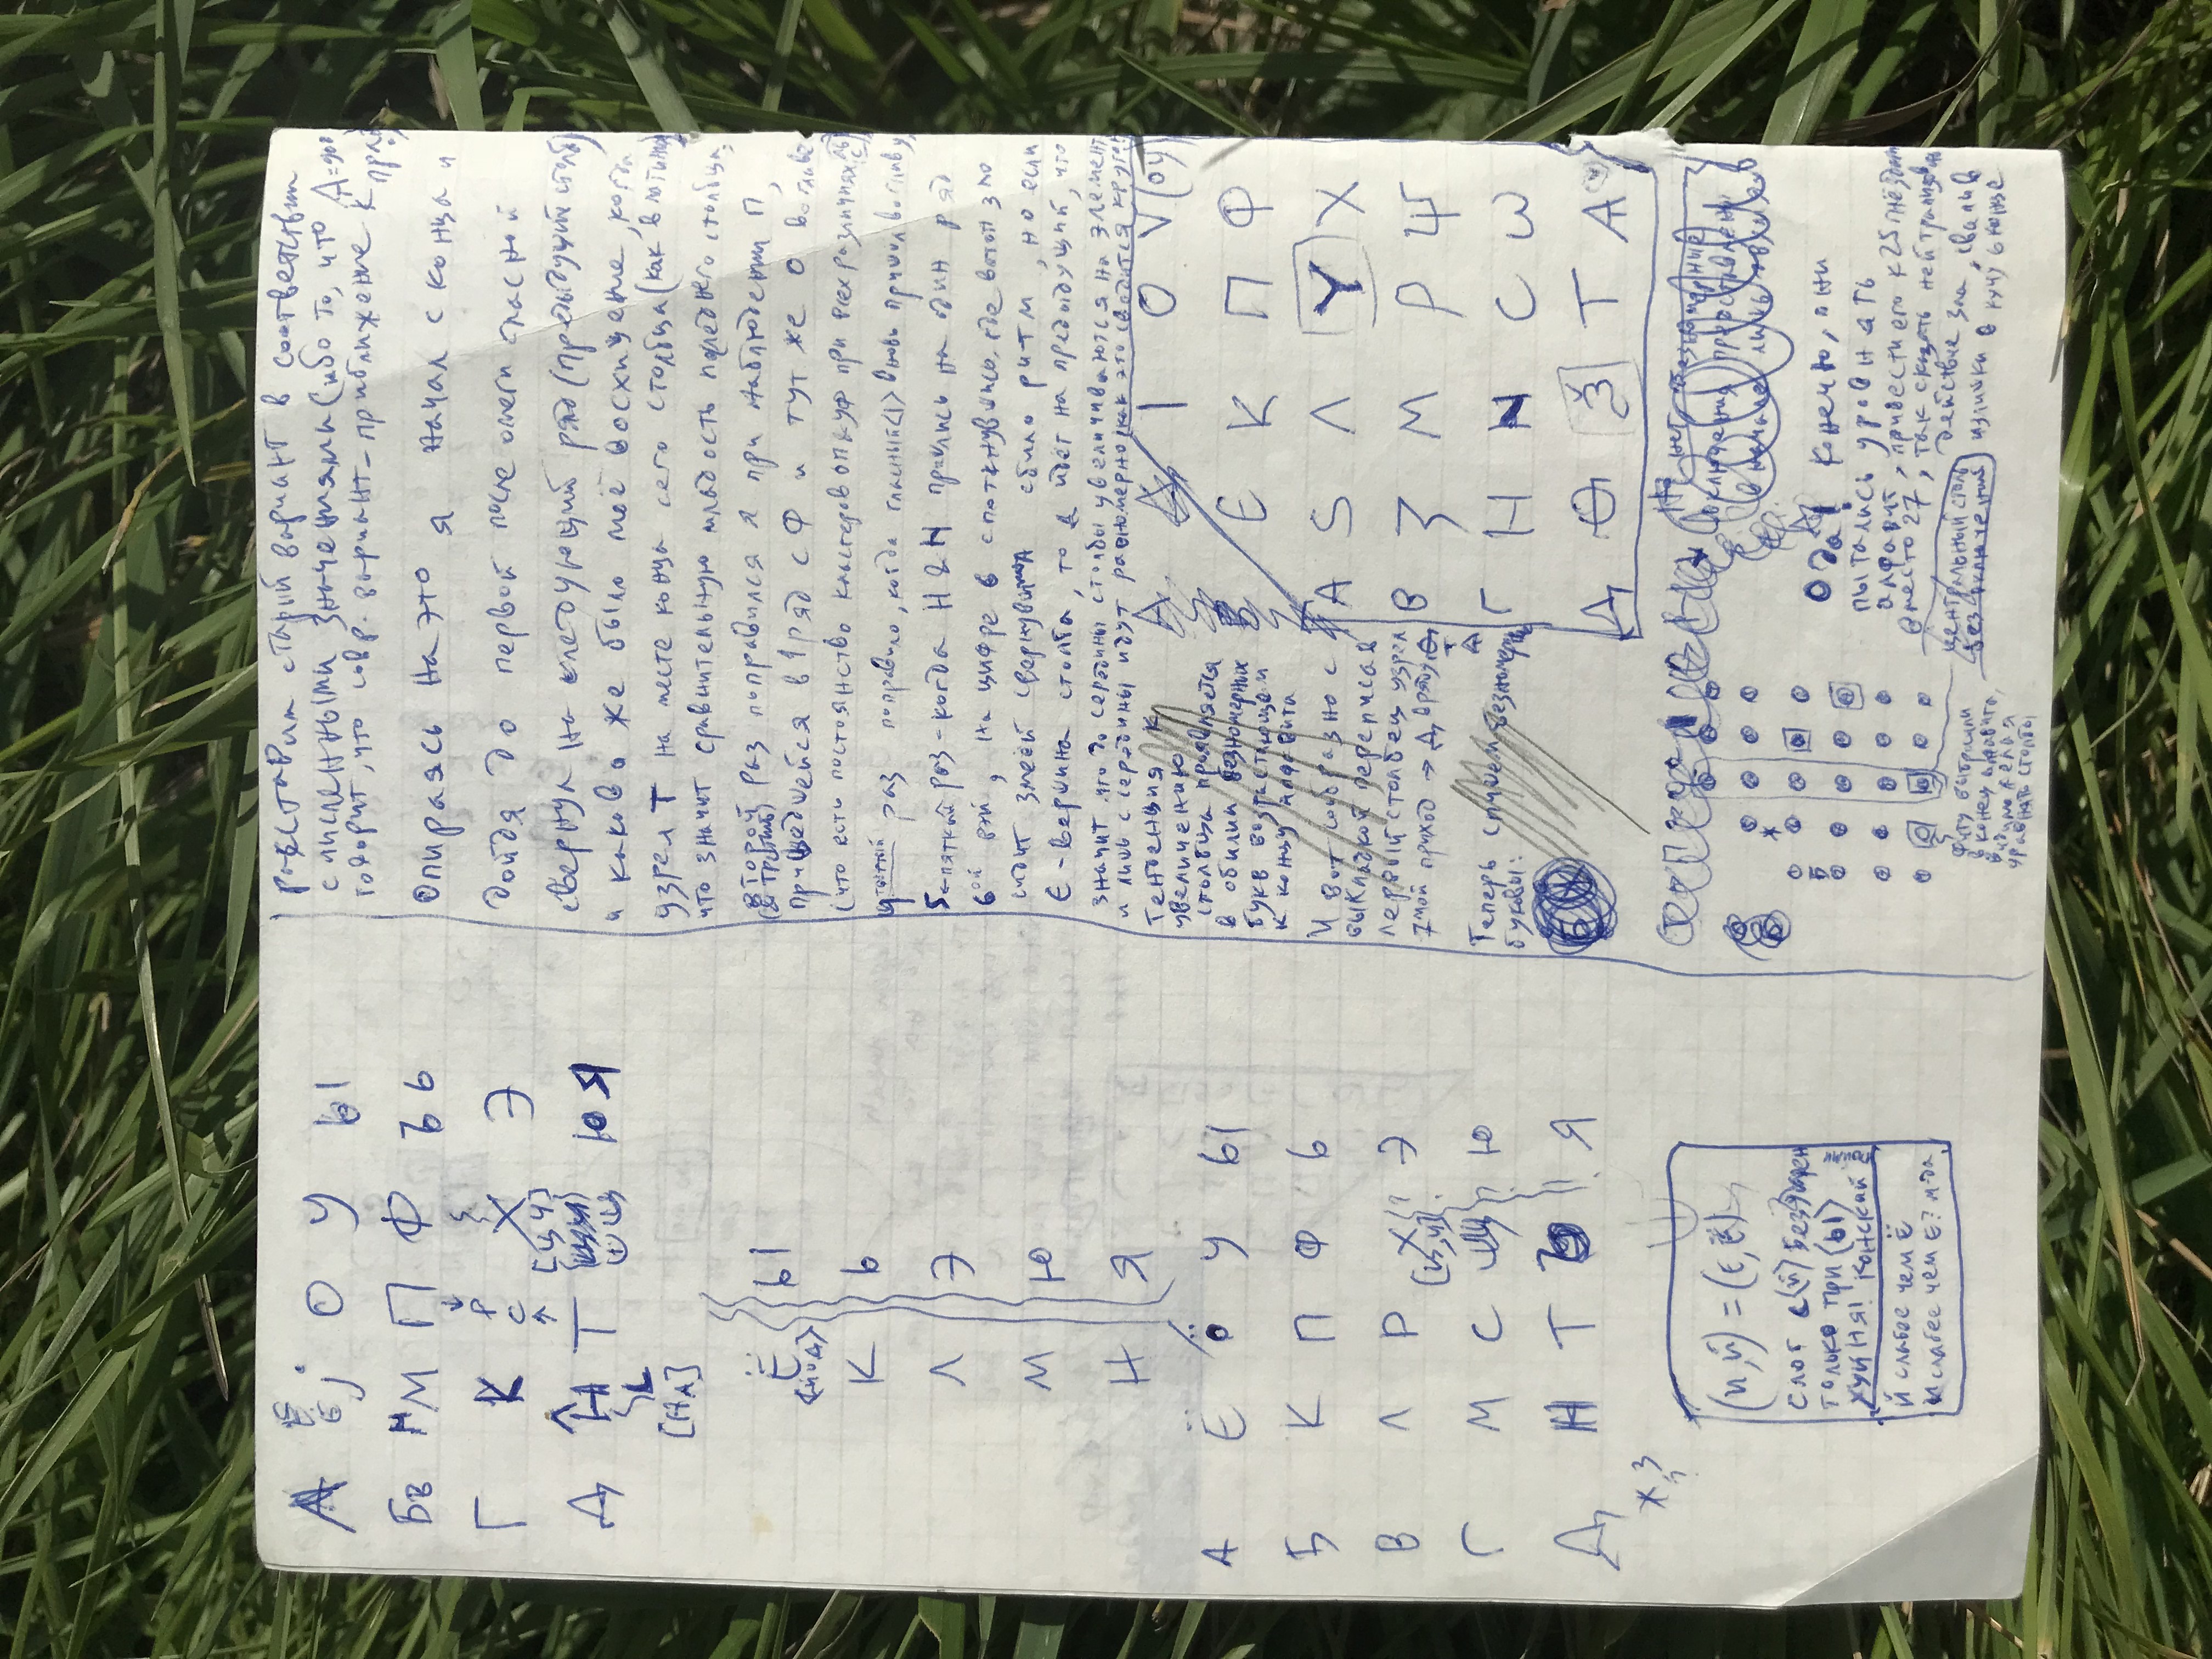 А Е j О У Ы
Бв М П Ф Ъ Ь
Г К Р С Х Э
[Ц Ч]
Д Н Т Ю Я
[НА]
Ё Ы
<йод>
К Ь
Л Э
М Ю
Н Я
А Ё Ö У Ы
Б К П Ф Ь
В Л Р Х ? Э
[Ц,Ч]
Г М С Ю
Д Н Т Ъ Я
Ж З
?
(И,Й) = (Е,Ё)
слог с (й) безударен
только при (ы)
хуйня! конский
пойми
Й слабее чем Ё
И слабее чем Е? м-да
расставим старый вариант в соответствии
с численными значениями (ибо то, что =900
говорит, что совр. вариант - приближение к
Опираясь на это я начал с конца и
дойдя до первой после омеги гласной
свернул на следующий ряд (предыдущий столб)
и каково же было моё восхищение, когда
узрел Т на месте конца сего столбца (как в латинице)
что значит сравнительную младость последнего столбца,
второй раз поправился я при наблюдении П,
(и третий)
пришедшейся в 1 ряд с Ф и тут же О во главе
(что есть постоянство кластеров ОП & УФ при всех различиях
4 раз поправило, когда гласный <I> вновь пришёл во главу,
5 ← пятый раз - когда Н & N пришлись на один ряд
6ой раз, на цифре 6 споткнувшись, где зло
сидит змеёй свернувшись сбило ритм, но если
Є - вершина столба, то Д идёт на предыдущий, что
значит что до середины столбы увеличиваются на элемент
и лишь с середины идут равномерно (как это сводится
тенденция к
увеличению
столбца проявляется
в обилии безномерных
букв возрастающем
к концу алфавита
И вот сообразно с
выкладкой переписав
первый столбец узрел
7мой приход → Д в ряду Ѳ
Т
Теперь
буквы:
I О V (ОУ)
Є К П Ф
А Ѕ Л Y Х
В З М Р Ѱ
Г Н N С Ѡ
Д Ѳ Ѯ Т Ѧ
нет безномерные
включения представлены
в начале лишь
О да! Конечно, они
пытались уровнять
алфавит, привести его к 25 гнёздам
вместо 27, так сказать нейтрализовать
действие зла, свалив
излишки в кучу в конце
Ж
Б
центральный столб
без включений
Фиту выбросили
в конец алфавита,
видимо желая
уравнять столбы